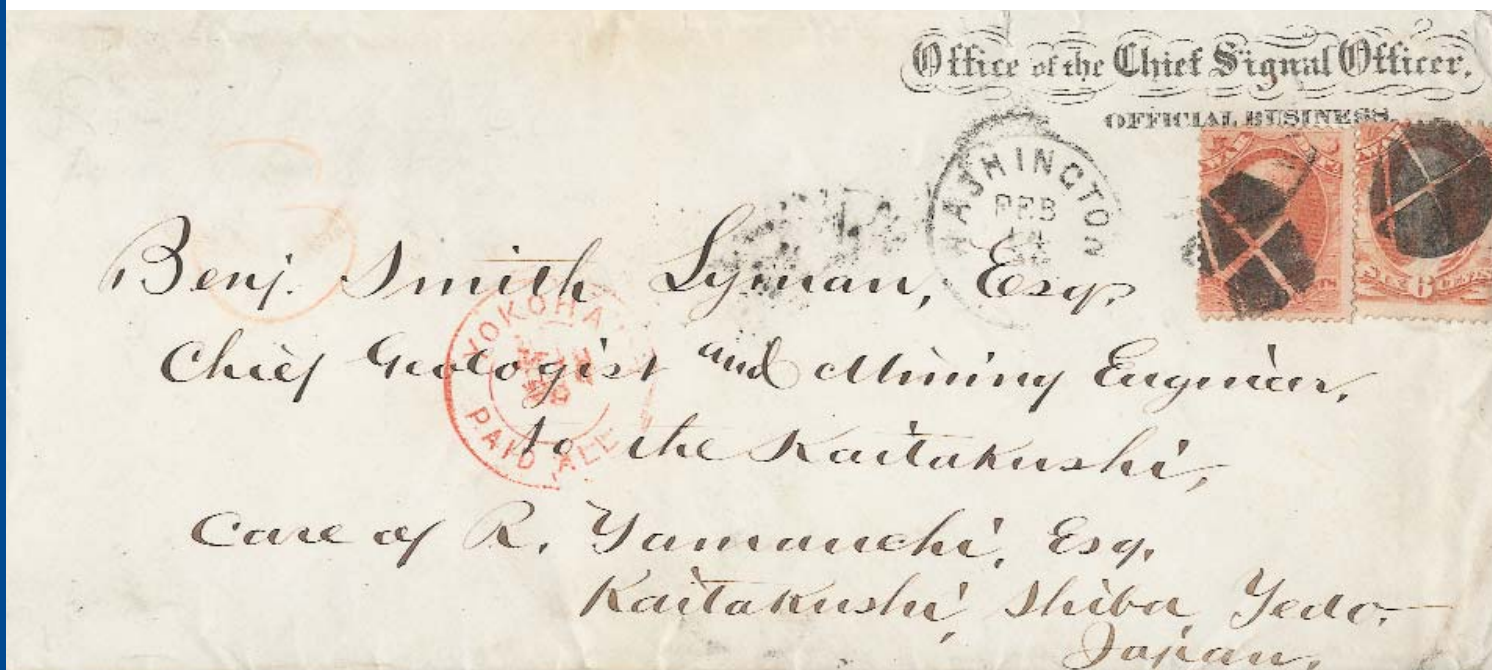 Office of the Chief Signal Officer,
OFFICIAL BUSINESS.
WASHINGTON
FEB
14
SIX 6 CENTS
Benj. Smith Lyman, Esq.
Chief Geologist and Mining Engineer,
to the Kaitakushi,
Care of R. Yamauchi, Esq.
Kaitakushi, Shiba, Yedo.
Japan.
YOKOHA
PAID ALL